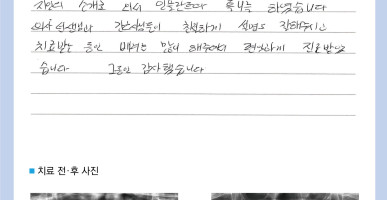 지인의 소개로 와서 임플란트와 록복을 하였습니다
의사 선생님과 간호사님들이 친절하게 설명도 잘해주시고
치료받는 동안 배려를 많이 해주셔서 편안하게 진료받았
습니다. 그동안 감사했습니다
치료 전·후 사진